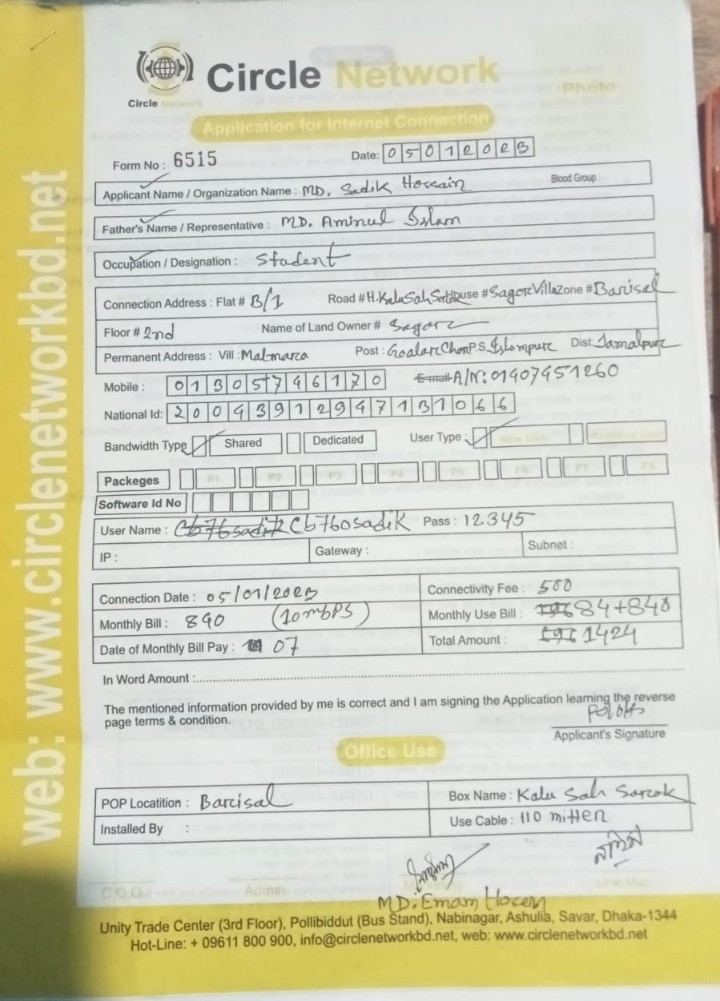 Circle Network
Circle Network
Photo
Application for Internet Connection
Form No : 6515 Date: 05012023
Applicant Name / Organization Name : MD. Sadik Hossain Blood Group
Father's Name / Representative : MD. Aminul Islam
Occupation / Designation : Student
Connection Address : Flat # B/1 Road #H.KaluSah House # Sagor Villa Zone # Barisal
Floor # 2nd Name of Land Owner # Sagor
Permanent Address : Vill : Malmarca Post : P.S. Islampur Dist: Jamalpur
Mobile : 01305746170 Email A/N: 01407451260
National Id: 20043912947131066
Bandwidth Type Shared Dedicated User Type : New User
Packeges P1 P2 P3 P4 P5 P6 P7 P8
Software Id No
User Name : Cb760sadik Pass : 12345
IP : Gateway : Subnet :
Connection Date : 05/01/2023 Connectivity Fee : 500
Monthly Bill : 890 (10mbps) Monthly Use Bill : 84+840
Date of Monthly Bill Pay : 07 Total Amount : 1424
In Word Amount :
The mentioned information provided by me is correct and I am signing the Application learning the reverse
page terms & condition.
Applicant's Signature
Office Use
POP Locatition : Barisal Box Name : Kalu Sah Sarok
Installed By : Use Cable : 110 mitter
C.O.O Admin
MD. Emam Hocen
Unity Trade Center (3rd Floor), Pollibiddut (Bus Stand), Nabinagar, Ashulia, Savar, Dhaka-1344
Hot-Line: + 09611 800 900, info@circlenetworkbd.net, web: www.circlenetworkbd.net
web: www.circlenetworkbd.net